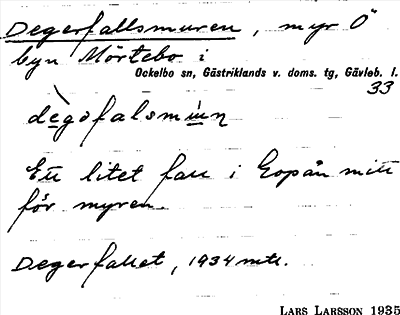 Degerfallsmuren, myr Ö
byn Mörtebo i
Ockelbo sn, Gästriklands v. doms. tg, Gävleb. l.
33
Ett litet fall i Gopån mitt
för myren.
Degerfallet, 1934 mtl.
LARS LARSSON 1935